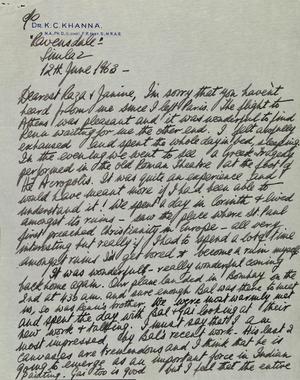 c/o
DR. K. C. KHANNA,
"Ravensdale"
Simla 2
12th June 1963 -
Dearest Raza & Janine, I'm sorry that you haven't
heard from me since I left Paris. The flight to
Athens was pleasant and it was wonderful to find
Renu waiting for me the other end. I felt absolutely
exhausted and spent the whole day in bed, sleeping
In the evening we went to see a Greek tragedy
performed in the old Roman Theatre at the foot of
the Acropolis. It was quite an experience (and I
would have meant more if I had been able to
understand it! We spent a day in Corinth & lived
amongst its ruins - saw the place where St Paul
first preached Christianity in Europe - all very
interesting but really if I had to spend a lot of time
amongst ruins I'd get bored & become a ruin myself
It was wonderful - really wonderful coming
back home again. Our plane landed in Bombay on the
2nd at 4.30 am. and sure enough Bal was there to meet
us, so was brother. We were most warmly met
and spent the day with Bal & Gai looking at their
new work & talking. I must say that I am
most impressed by Bal's recent work. His last 2
canvases are tremendous and I think that he is
going to emerge as an important force in Indian
Painting. Gai too is good but I felt that the entire